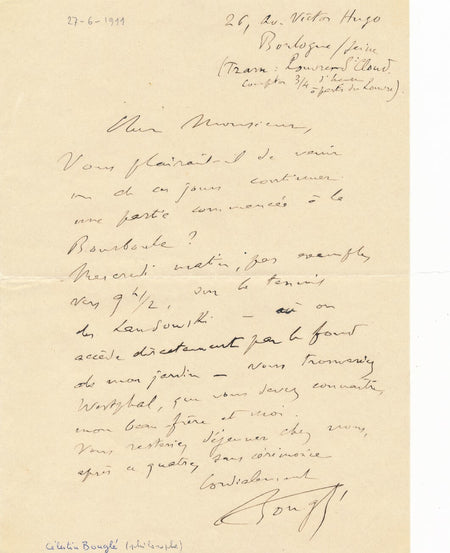 27-6-1911
26, Av. Victor Hugo
Boulogne /Seine
(Tram : Louvre-St Cloud.
compter 3/4 d'heure
à partir du Louvre).
Cher Monsieur,
Vous plairait-il de venir
un de ces jours continuer
une partie commencée à la
Bourboule ?
Mercredi matin, par exemple,
vers 9h 1/2, sur le tennis
des Landowski — où on
accède directement par le fond
de mon jardin — vous trouveriez
Westphal, que vous devez connaître,
mon beau frère et moi.
Vous resteriez déjeuner chez nous,
après ce quatres sans cérémonie
Cordialement
Bouglé
Célestin Bouglé (philosophe)